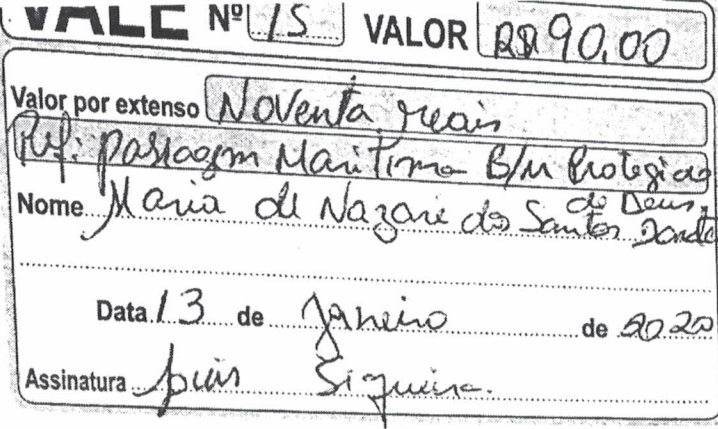 VALE Nº 15 VALOR R$ 90,00
Valor por extenso Noventa reais
Ref: passagem Maritima B/M Protegido
de Deus,
Nome Maria de Nazare dos Santos
Data 13 de Janeiro de 2020
Assinatura Siqueira.